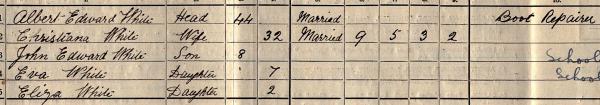 1 Albert Edward White Head 44 Married Boot Repairer
2 Christiana White Wife 32 Married 9 5 3 2
3 John Edward White Son 8 School
4 Eva White Daughter 7 School
5 Eliza White Daughter 2